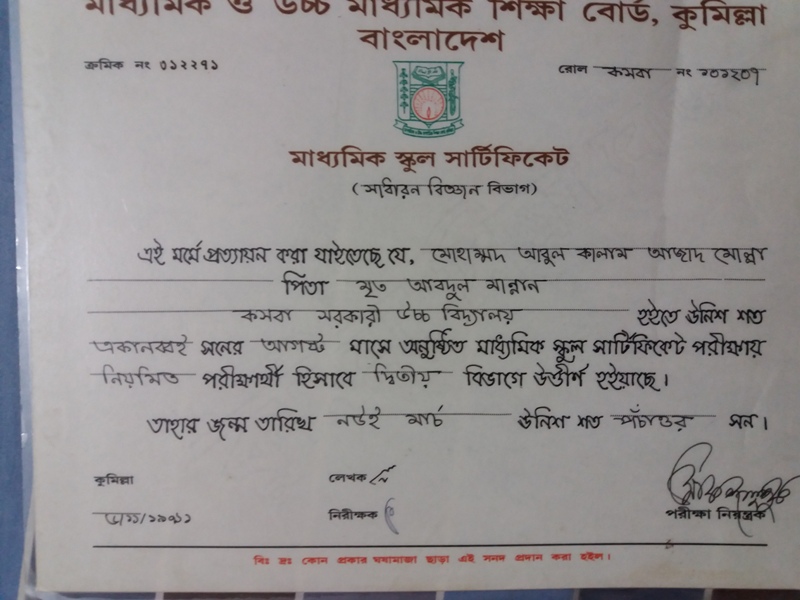 মাধ্যমিক ও উচ্চ মাধ্যমিক শিক্ষা বোর্ড, কুমিল্লা
বাংলাদেশ
ক্রমিক নং ০১২২৭১
রোল কসবা নং ২০১২০৭
মাধ্যমিক স্কুল সার্টিফিকেট
(সাধারন বিজ্ঞান বিভাগ)
এই মর্মে প্রত্যায়ন করা যাইতেছে যে, মোহাম্মদ আবুল কালাম আজাদ মোল্লা
পিতা মৃত আবদুল মান্নান
কসবা সরকারী উচ্চ বিদ্যালয় হইতে উনিশ শত
একানব্বই সনের আগষ্ট মাসে অনুষ্ঠিত মাধ্যমিক স্কুল সার্টিফিকেট পরীক্ষায়
নিয়মিত পরীক্ষার্থী হিসাবে দ্বিতীয় বিভাগে উত্তীর্ণ হইয়াছে।
তাহার জন্ম তারিখ নউই মার্চ উনিশ শত পঁচাত্তর সন।
কুমিল্লা
লেখক
নিরীক্ষক
পরীক্ষা নিয়ন্ত্রক
বিঃ দ্রঃ কোন প্রকার ঘষামাজা ছাড়া এই সনদ প্রদান করা হইল।